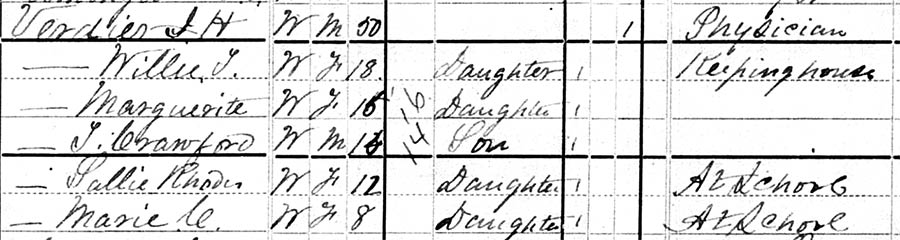 Verdier J H W M 50 1 Physician
— Willie T. W F 18 Daughter 1 Keeping house
— Marguerite W F 16 16 Daughter 1
— T. Crawford W M 14 14 Son 1
— Sallie Rhodes W F 12 Daughter 1 At School
— Marie C. W F 8 Daughter 1 At School